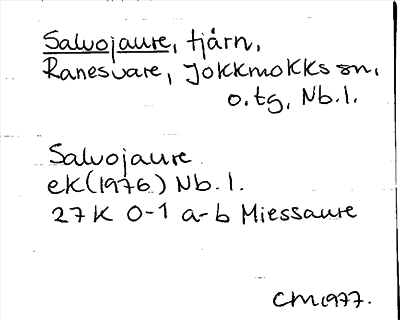 Salvojaure, tjärn,
Ranesvare, Jokkmokks sn,
o.tg, Nb.l.
Salvojaure
ek(1976) Nb.l.
27K 0-1 a-b Miessaure
CM1977.